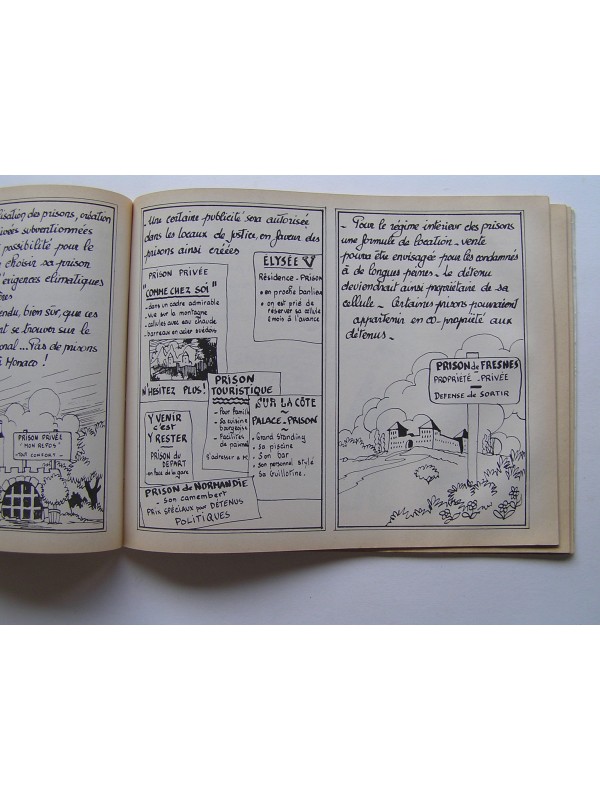 isation des prisons, création
ivées subventionnées
possibilité pour le
choisir sa prison
d'exigences climatiques
ndu, bien sûr, que ces
nt se trouver sur le
onal... Pas de prisons
à Monaco !
PRISON PRIVÉE
"MON REPOS"
-TOUT CONFORT-
- Une certaine publicité sera autorisée
dans les locaux de justice, en faveur des
prisons ainsi créées
PRISON PRIVÉE
"COMME CHEZ SOI"
- dans un cadre admirable
- vue sur la montagne
- cellules avec eau chaude
- barreaux en acier suédois
N'HESITEZ PLUS!
ELYSÉE V
Résidence - PRISON
• en proche banlieue
• on est prié de
réserver sa cellule
6 mois à l'avance
PRISON
TOURISTIQUE
- Pour famille
- Sa cuisine
bourgeoise
- Facilités
de paieme
S'adresser à M.
SUR LA CÔTE
~
PALACE-PRISON
~
- Grand Standing
- Sa piscine
- Son bar
- son personnel stylé
- Sa Guillotine.
Y VENIR
c'est
Y RESTER
PRISON du
DÉPART
en face de la gare
PRISON de NORMANDIE
- Son camembert
PRIX SPÉCIAUX pour DÉTENUS
POLITIQUES
- Pour le régime intérieur des prisons
une formule de location-vente
pourra être envisagée pour les condamnés
à de longues peines. Le détenu
deviendrait ainsi propriétaire de sa
cellule - Certaines prisons pourraient
appartenir en co-propriété aux
détenus -
PRISON de FRESNES
PROPRIÉTÉ - PRIVÉE
-
DEFENSE de SORTIR